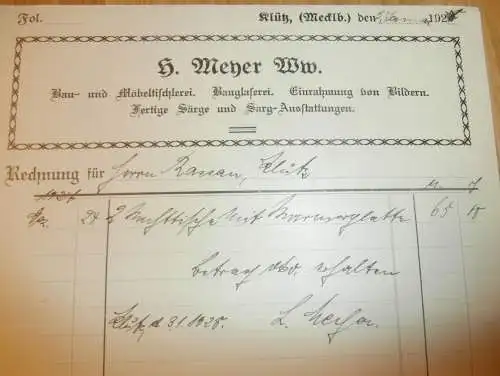 Fol.
Klütz, (Mecklb.) den 192
H. Meyer Ww.
Bau- und Möbeltischlerei. Bauglaserei. Einrahmung von Bildern.
Fertige Särge und Sarg-Ausstattungen.
Rechnung für Herrn Klütz
M. Pf
24 2 Nachttische mit Marmorplatte 65 15
Betrag obd. erhalten
Klütz, d. 3.1.1925. Meyer.